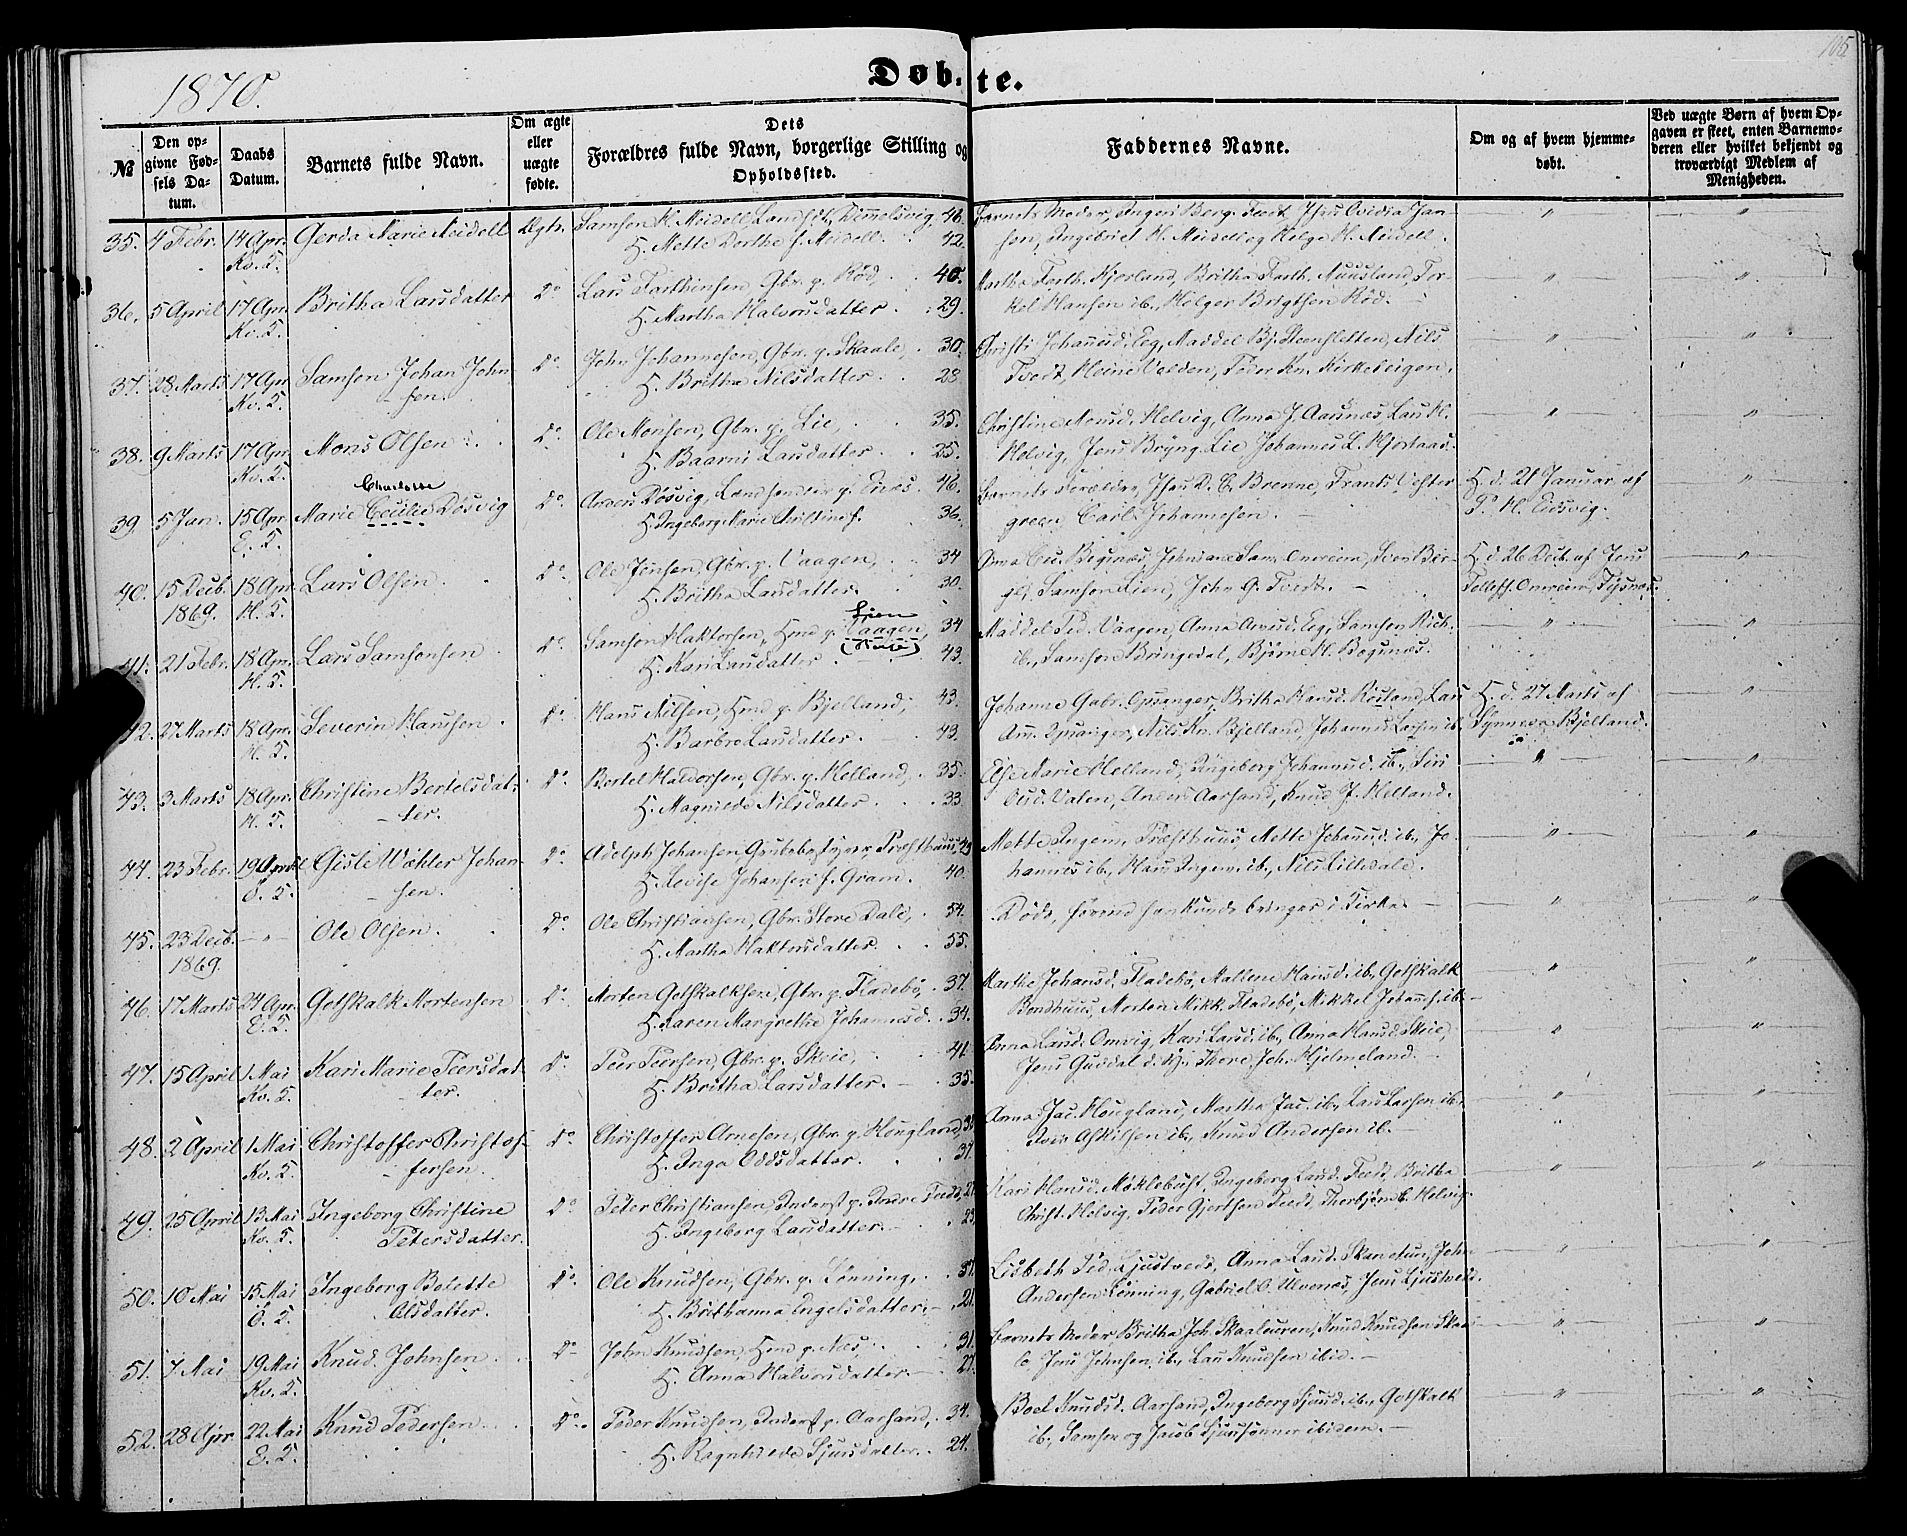 105
1870.
Døbte.
№
Den opgivne Fødsels Datum.
Daabs Datum.
Barnets fulde Navn.
Om ægte eller uægte fødte.
Dets Forældres fulde Navn, borgerlige Stilling og Opholdssted.
Faddernes Navne.
Om og af hvem hjemmedøbt.
Ved uægte Børn af hvem Opgaven er skeet, enten Barnemoderen eller hvilket bekjendt og troværdigt Medlem af Menigheden.
35. 4 Febr. 14 Apr. Kv. T. Gerda Marie Meidell Ægte Samson H. Meidell, Landh. Dimmelsvig, 46.
H. Mette Dorthe f. Meidell. 42.
Barnets Moder, Ingeri Berg. Tvedt, Ovidia Jan-
sen, Ingebriet H. Meidell og Helge H. Meidell.
36. 5 April 17 Apr. Kv. T. Britha Larsdatter Do Lars Torkildsen, Gbr. p. Rød, 40.
H. Martha Halvorsdatter 29.
Martha Torkh. Kjerland, Britha Torkh. Muusland, Tor-
kel Hansen ib., Holger Brigtsen Rød.
37. 28 Marts 17 Apr. Kv. T. Samson Johan John-
sen. Do John Johannesen, Gbr. p. Skaale, 30.
H. Britha Nilsdatter. 28
Christi Johannesd. Eeg, Maddel Bj. Steensletten, Nils
Tvedt, Heine Valden, Peder Kn. Kirkesteigen.
38. 9 Marts 17 Apr. Kv. T. Mons Olsen Do Ole Monsen, Gbr. p. Lie, 35.
H. Baarni Larsdatter 25.
Christine Monsd. Helvig, Anna J. Aarsnæs, Lars H.
Helvig, Jens Bryng. Lie, Johannes L. Hjortaas.
39. 5 Jan. 15 Apr. E. T. Marie Cecilie Døsvig
Charlotte
Do Anders Døsvig, Landhandler p. Enes 46.
H. Ingeborg Marie Kristine f. 36.
Barnets Forældre, C. Brenne, Frants Vester-
green, Carl Johannesen.
H. d. 21 Januar af
P. H. Eidsvig.
40. 15 Decb. 1869. 18 Apr. H. T. Lars Olsen Do Ole Jensen, Gbr. p. Vaagen, 34
H. Britha Larsdatter. 30.
Samson Lien, John G. Tvedt.
H. d. 26 Decb. af Jens
Tollefs. Onreim, Tysnæs.
41. 21 Febr. 18 Apr. H. T. Lars Samsonsen Do Samson Haktorsen, Hmd p. Vaagen, 34
H. Kari Larsdatter 43.
Maddel Ped. Vaagen, Anna Amund. Eeg, Samson Rich.
ib., Samson Bringedal, Bjørne H. Bogsnæs.
42. 27 Marts 18 Apr. H. T. Severin Hansen Do Hans Nilsen, Hmd p. Bjelland, 43.
H. Barbro Larsdatter. 43.
Johanne Gabr. Opsanger, Britha Hansd. Røiland, Lars
Am. Opsanger, Nils Kn. Bjelland, Johannes Larsen ib.
H. d. 27 Marts af
Synneva Bjelland.
43. 3 Marts 18 Apr. H. T. Christine Bertelsdat-
ter. Do Bertel Haldorsen, Gbr. p. Helland, 35.
H. Magnilde Nilsdatter 33.
Else Marie Helland, Ingeborg Johannesd. ib., Siri
Olsd. Valen, Anders Aarsand, Knud J. Helland.
44. 23 Febr. 19 April E. T. Gisle Wøhler Johan-
sen. Do Adolph Johansen, Grubebestyrer, Præsthuus, 43
H. Lovise Johansen f. Gram. 40.
Mette Ingem. Præsthuus, Mette Johansd. ib., Jo-
hannes ib., Hans Ingem. ib., Nils Lilledale.
45. 23 Decb. 1869. Ole Olsen. Do Ole Christiansen, Gbr. Store Dale, 54.
H. Martha Haktorsdatter. 55.
Døde, førend han kunde bringes i Kirke.
46. 17 Marts 24 Apr. E. T. Gotskalk Mortensen Do Morten Gotskalksen, Gbr. p. Fladebø, 37.
H. Karen Margrethe Johannesd. 34.
Marthe Johansd. Fladebø, Mallene Hansd. ib., Gotskalk
Bondhuus, Morten Mikk. Fladebø, Mikkel Johannes. ib.
47. 15 April 1 Mai Kv. T. Kari Marie Peersdat-
ter. Do Peer Peersen, Gbr. p. Skeie, 41.
H. Britha Larsdatter. 35.
Anna Larsd. Omvig, Kari Larsd. ib., Anna Hansd. Skeie,
Jens Guddal d. y., Thore Joh. Hjelmeland.
48. 2 April 1 Mai Kv. T. Christoffer Christof-
fersen. Do Christoffer Arnesen, Gbr. p. Hougland, 38
H. Inga Oddsdatter. 37.
Anna Jac. Hougland, Martha Jac. ib., Lars Larsen ib.,
Askilsen ib., Knud Andersen ib.
49. 25 April 13 Mai Kv. T. Ingeborg Christine
Petersdatter. Do Peter Christiansen, Inderst p. Indre Tvedt, 27.
H. Ingeborg Larsdatter. 23.
Kari Hansd. Møklebust, Ingeborg Larsd. Tvedt, Britha
Christ. Helvig, Peder Gjertsen Tvedt, Thorbjørn C. Helvig.
50. 10 Mai 15 Mai E. T. Ingeborg Bolette
Olsdatter. Do Ole Knudsen, Gbr. p. Lønning, 37.
H. Brithanna Engelsdatter. 21.
Lisbeth Ped. Ljustveds, Anna Larsd. Skanetun, John
Andersen Lønning, Gabriel O. Ulvenæs, Jens Ljustvedt.
51. 7 Mai 19 Mai Kv. T. Knud Johnsen. Do John Knudsen, Hmd p. Næs, 31.
H. Anna Halvorsdatter. 27.
Barnets Moder, Britha Joh. Skaaleuren, Knud Knudsen Skaa-
le, Jens Johnsen ib., Lars Knudsen ibid.
52. 28 Apr. 22 Mai E. T. Knud Pedersen Do Peder Knudsen, Inderst p. Aarsand, 34.
H. Ragnhilde Sjursdatter. 24.
Boel Knudsd. Aarsand, Ingeborg Sjursd. ib., Gotskalk
ib., Samson og Jacob Sjurssønner ibidem.